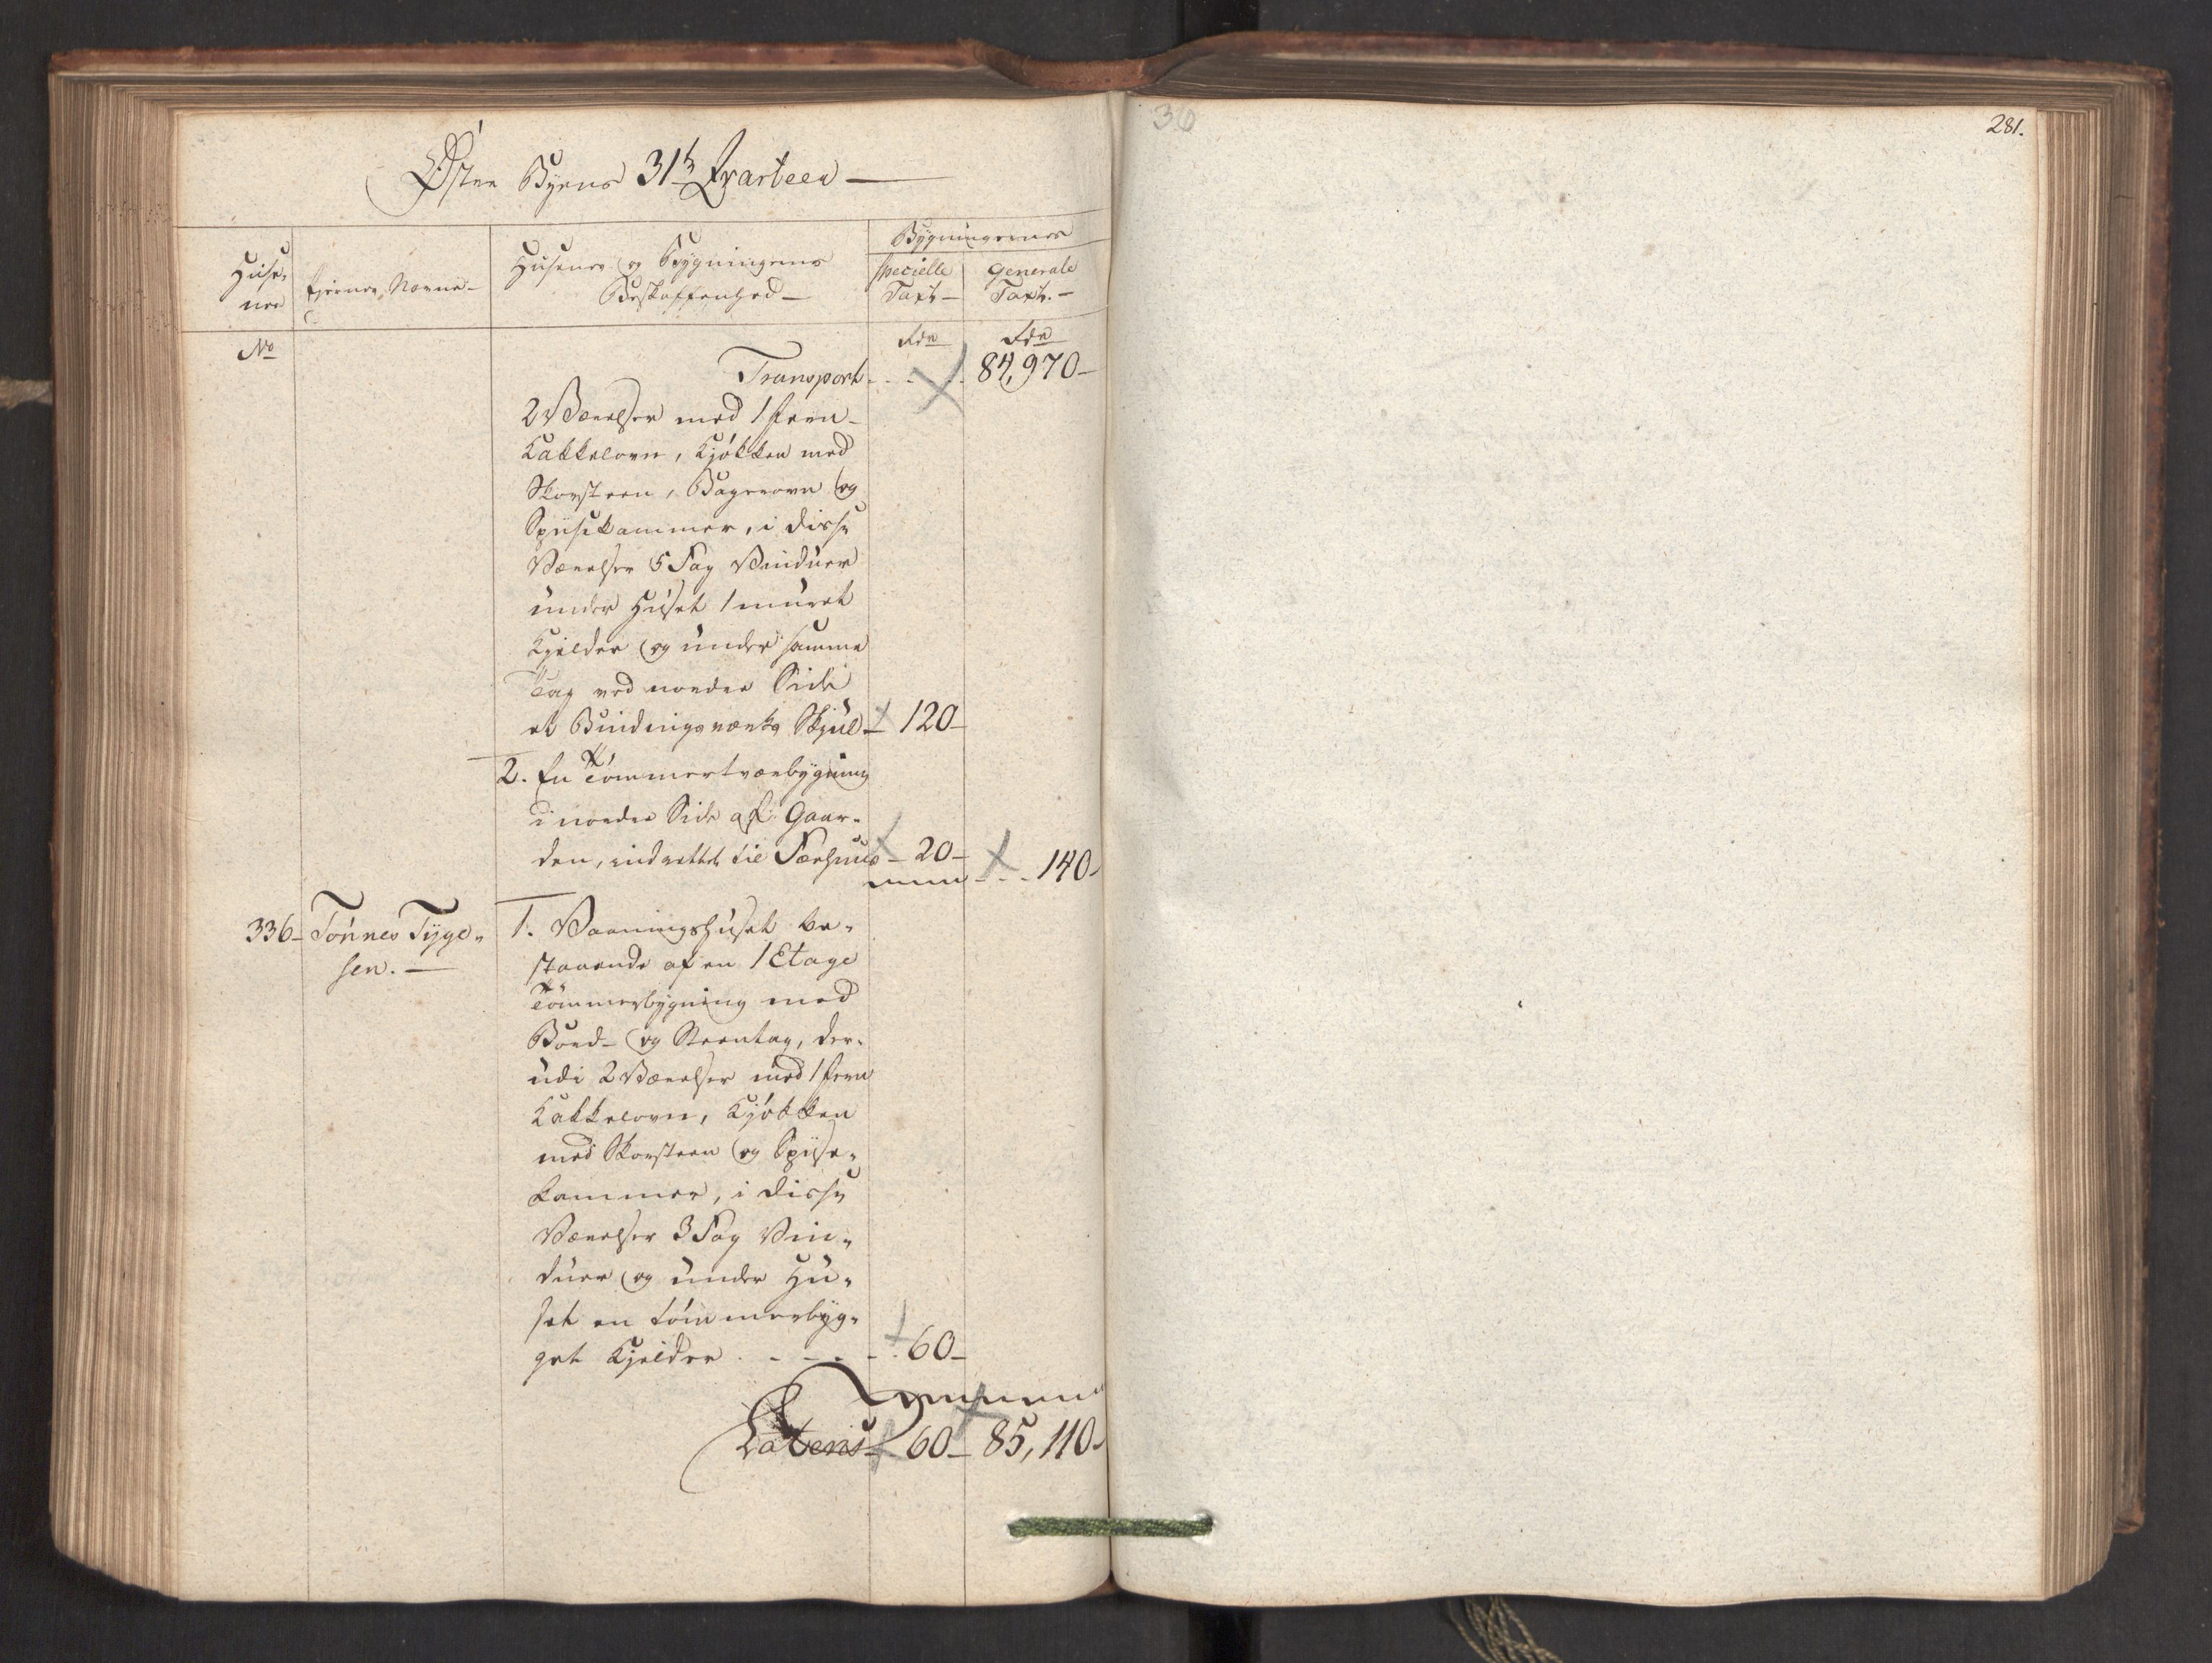 Østre Byens 31te Qvarteer
Huse-
nes
No
Ejernes Navne
Husenes og Bygningernes
Beskaffenhed
Bygningernes
specielle
Taxt
Generale
Taxt.
Rdr
Rdr
Transport 84,970
2 Værelser med 1 Jern-
Kakkelovn, Kjøkken med
Skorsteen, Bagerovn og
Spiisekammer, i disse
Værelser 5 Fag Vinduer
under Huset 1 muret
Kjelder og under samme
Tag ved nordre Side
et Bindingsværks Skjul 120
2. En Tømmertværbygning
i nordre Side af Gaar-
den, indrettet til Færhuus 20 140
336 Tønnes Tÿge-
sen.
1. Vaaningshuset be-
staaende af en 1 Etage
Tømmerbygning med
Bord- og Steentag, der-
udi 2 Værelser med 1 Jern
Kakkelovn, Kjøkken
med Skorsteen og Spise-
kammer, i disse
Værelser 3 Fag Vin-
duer og under Hu-
set en tømmerbyg-
get Kjelder 60
Latens 60 85,110
36
281.